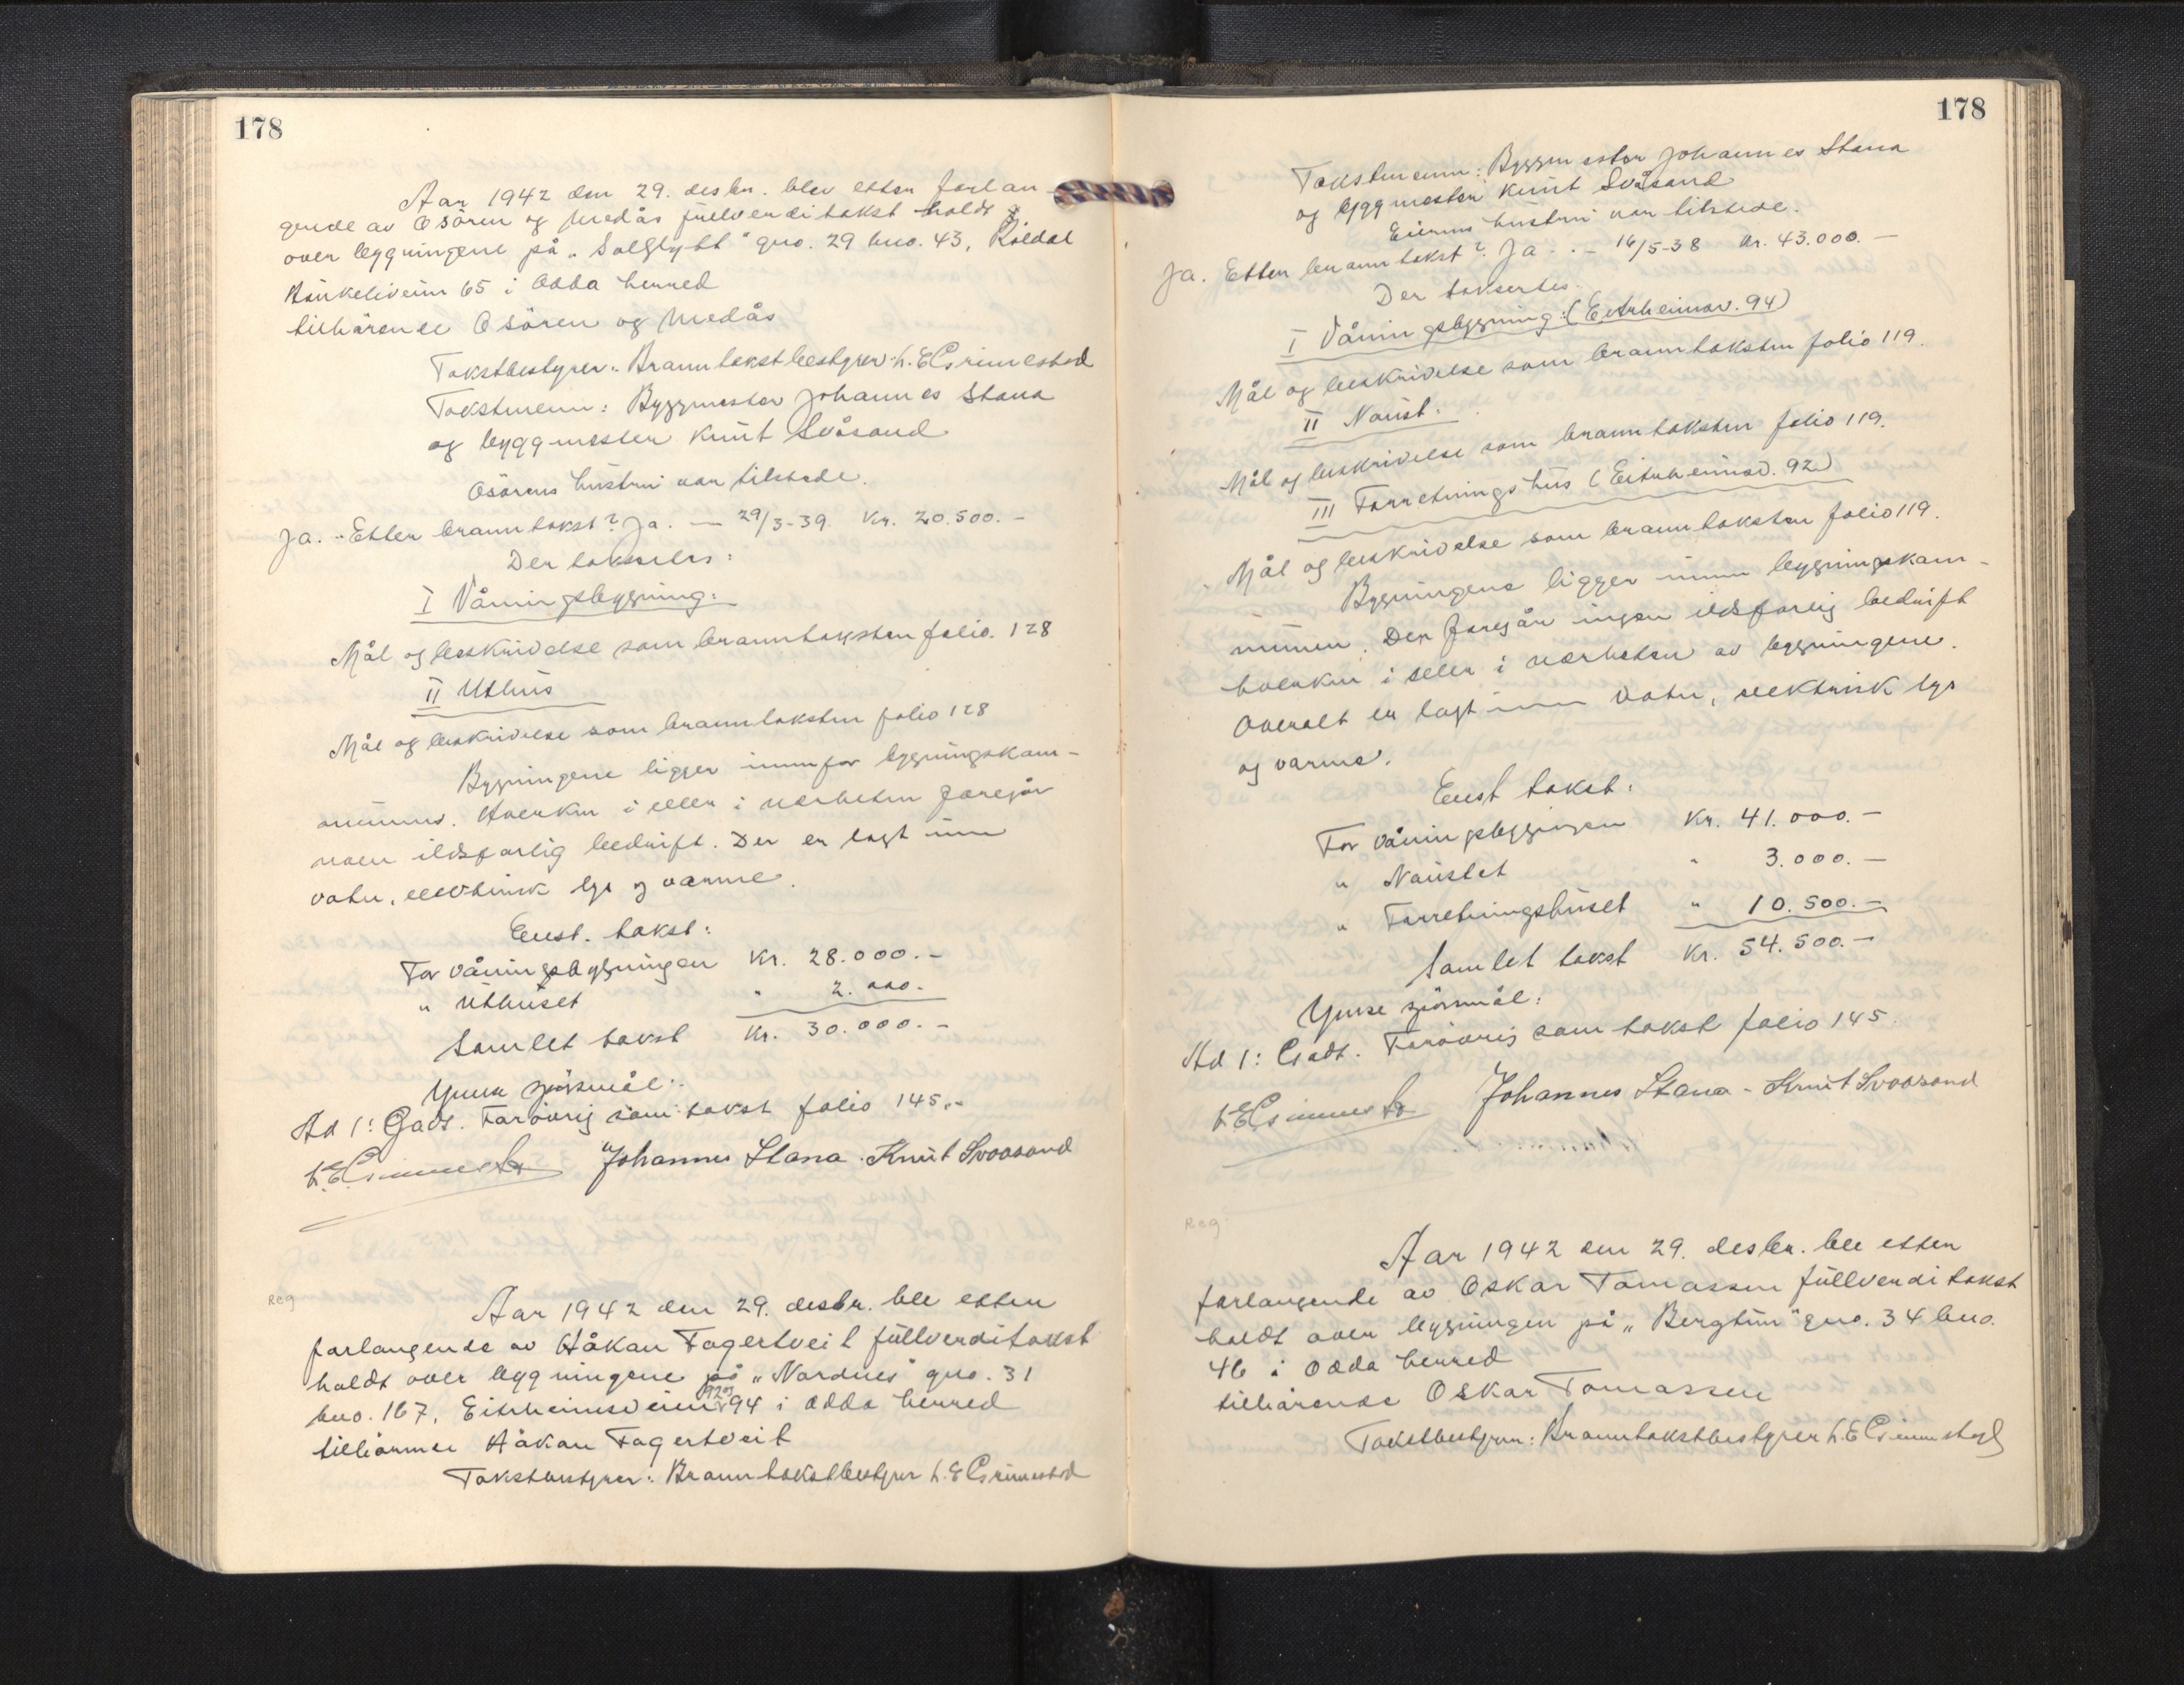 178
Aar 1942 den 29. desbr. blev etter forlan-
gende av Osören og Medås fullverditakst holdt
over bygningene på „Solglytt" gno. 29 bno. 43, Röldal
Haukeliveien 65 i Odda herred
tilhörende Osören og Medås
Takstbestyrer: Branntakstbestyrer L. E Grimestad
Takstmenn: Byggmester Johannes Stana
og byggmester Knut Svåsand
Osörens hustru var tilstede.
Ja. - Etter branntakst? Ja. — 29/3-39. Kr. 20.500.-
Der takseres:
I Våningsbygning:
Mål og beskrivelse som branntaksten folio. 128
II Uthus
Mål og beskrivelse som branntaksten folio 128
Bygningene ligger innenfor bygningskom-
munens. Hverken i eller i nærheten foregår
noen ildsfarlig bedrift. Der er lagt inn
vatn, elektrisk lys og varme.
Enst. takst:
For våningsbygningen Kr. 28.000.-
" Uthuset " 2.000.-
Samlet takst Kr. 30.000.-
Ymse spörsmål:
Ad 1: Godt. Forövrig som takst folio 145.-
L. E Grimestad Johannes Stana. Knut Svoasand
Reg
Aar 1942 den 29. desbr. ble etter
forlangende av Håkan Tagertveit fullverditakst
holdt over bygningene på „Nordnes" gno. 31
bno. 167, Eitrheimsveien 92 og 94 i Odda herred
tilhörende Håkan Tagertveit
Takstbestyrer: Branntakstbestyrer L. E Grimestad
178
Takstmenn: Byggmester Johannes Stana
og byggmester Knut Svåsand
Eierens hustru var tilstede.
Ja. Etter branntakst? Ja. - 16/5-38 Kr. 43.000.-
Der takseres.
I Våningsbygning: (Eitrheimsv. 94)
Mål og beskrivelse som branntaksten folio 119.
II Naust:
Mål og beskrivelse som branntaksten folio 119.
III Forretningshus (Eitrheimsv. 92)
Mål og beskrivelse som branntaksten folio 119.
Bygningene ligger innen bygningskom-
munen. Der foregår ingen ildsfarlig bedrift
hverken i eller i nærheten av bygningene.
Overalt er lagt inn vatn, elektrisk lys
og varme.
Enst takst:
For våningsbygningen Kr. 41.000.-
" Naustet " 3.000.-
" Forretningshuset " 10.500.-
Samlet takst Kr. 54.500.-
Ymse spörsmål:
Ad 1: Godt. Forövrig som takst folio 145.
L. E Grimestad Johannes Stana - Knut Svoasand
Reg
Aar 1942 den 29. desbr. ble etter
forlangende av Oskar Tomassen fullverditakst
holdt over bygningen på „Bergtun" gno. 34 bno.
46 i Odda herred
tilhörende Oskar Tomassen
Takstbestyrer: Branntakstbestyrer L. E Grimestad